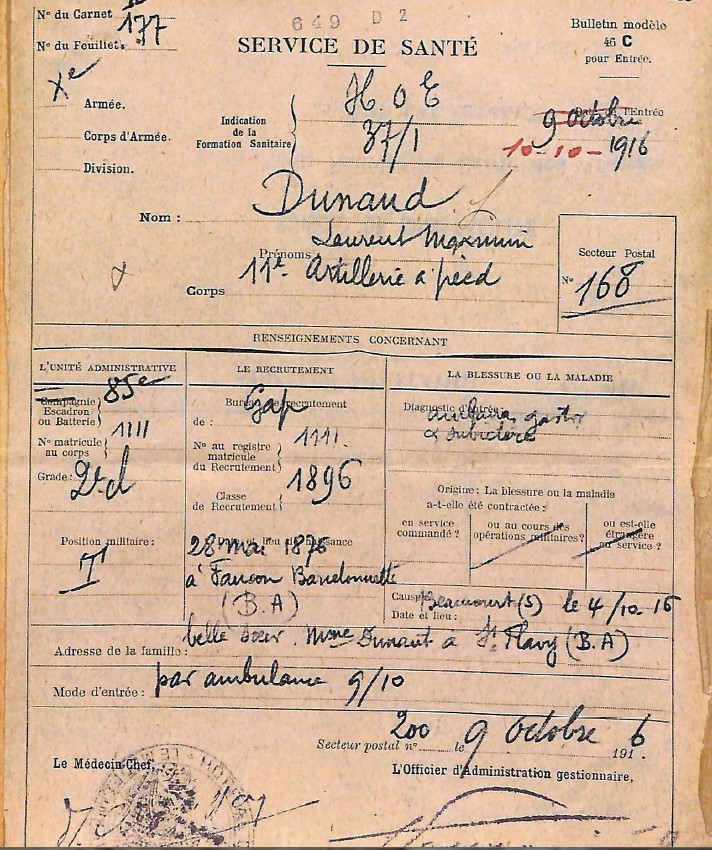 649 D 2
N° du Carnet
N° du Feuillet. 177
SERVICE DE SANTÉ
Bulletin modèle
46 C
pour Entrée.
Xe
Armée.
Corps d'Armée.
Division.
Indication
de la
Formation Sanitaire
H.O E
37/1
Date de l'Entrée
9 octobre
10-10-1916
Nom : Dunaud
Prénoms Laurent Maximin
Corps 11e Artillerie à pied
Secteur Postal
N° 168
RENSEIGNEMENTS CONCERNANT
L'UNITÉ ADMINISTRATIVE
Compagnie
Escadron
ou Batterie
85e
N° matricule
au corps
1111
Grade: 2e cl
Position militaire :
T
LE RECRUTEMENT
Bureau de recrutement
de : Gap
N° au registre
matricule
du Recrutement
1111.
Classe
de Recrutement
1896
Date et lieu de naissance
28 mai 1876
à Faucon Barcelonnette
(B.A)
LA BLESSURE OU LA MALADIE
Diagnostic d'entrée:
embarras gastr
Origine : La blessure ou la maladie
a-t-elle été contractée :
en service
commandé ?
ou au cours des
opérations militaires?
ou est-elle
étrangère
au service ?
Cause
Date et lieu :
Beaucourt (S) le 4/10-16
Adresse de la famille : belle soeur. Mme Dunaut à St Flavy (B.A)
Mode d'entrée : par ambulance 9/10
Secteur postal n° 200 le 9 octobre 191 6
Le Médecin-Chef,
L'Officier d'Administration gestionnaire,